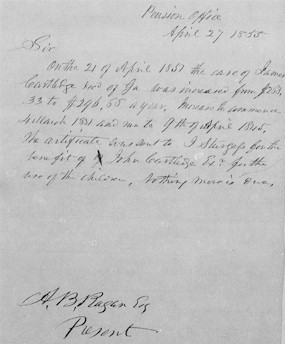 Pension Office
April 27 1855
Sir
On the 21 of April 1851 the case of James
Cartledge decd of Ga. was increased from $253.
33 to $296,58 a year, to commence
4 March 1831 and run to 9th of April 1845.
The certificate was sent to I Sturges for the
benefit of John Cartledge Esqr for the
use of the children, Nothing more is due.
A. B. Ragan Esq
Present